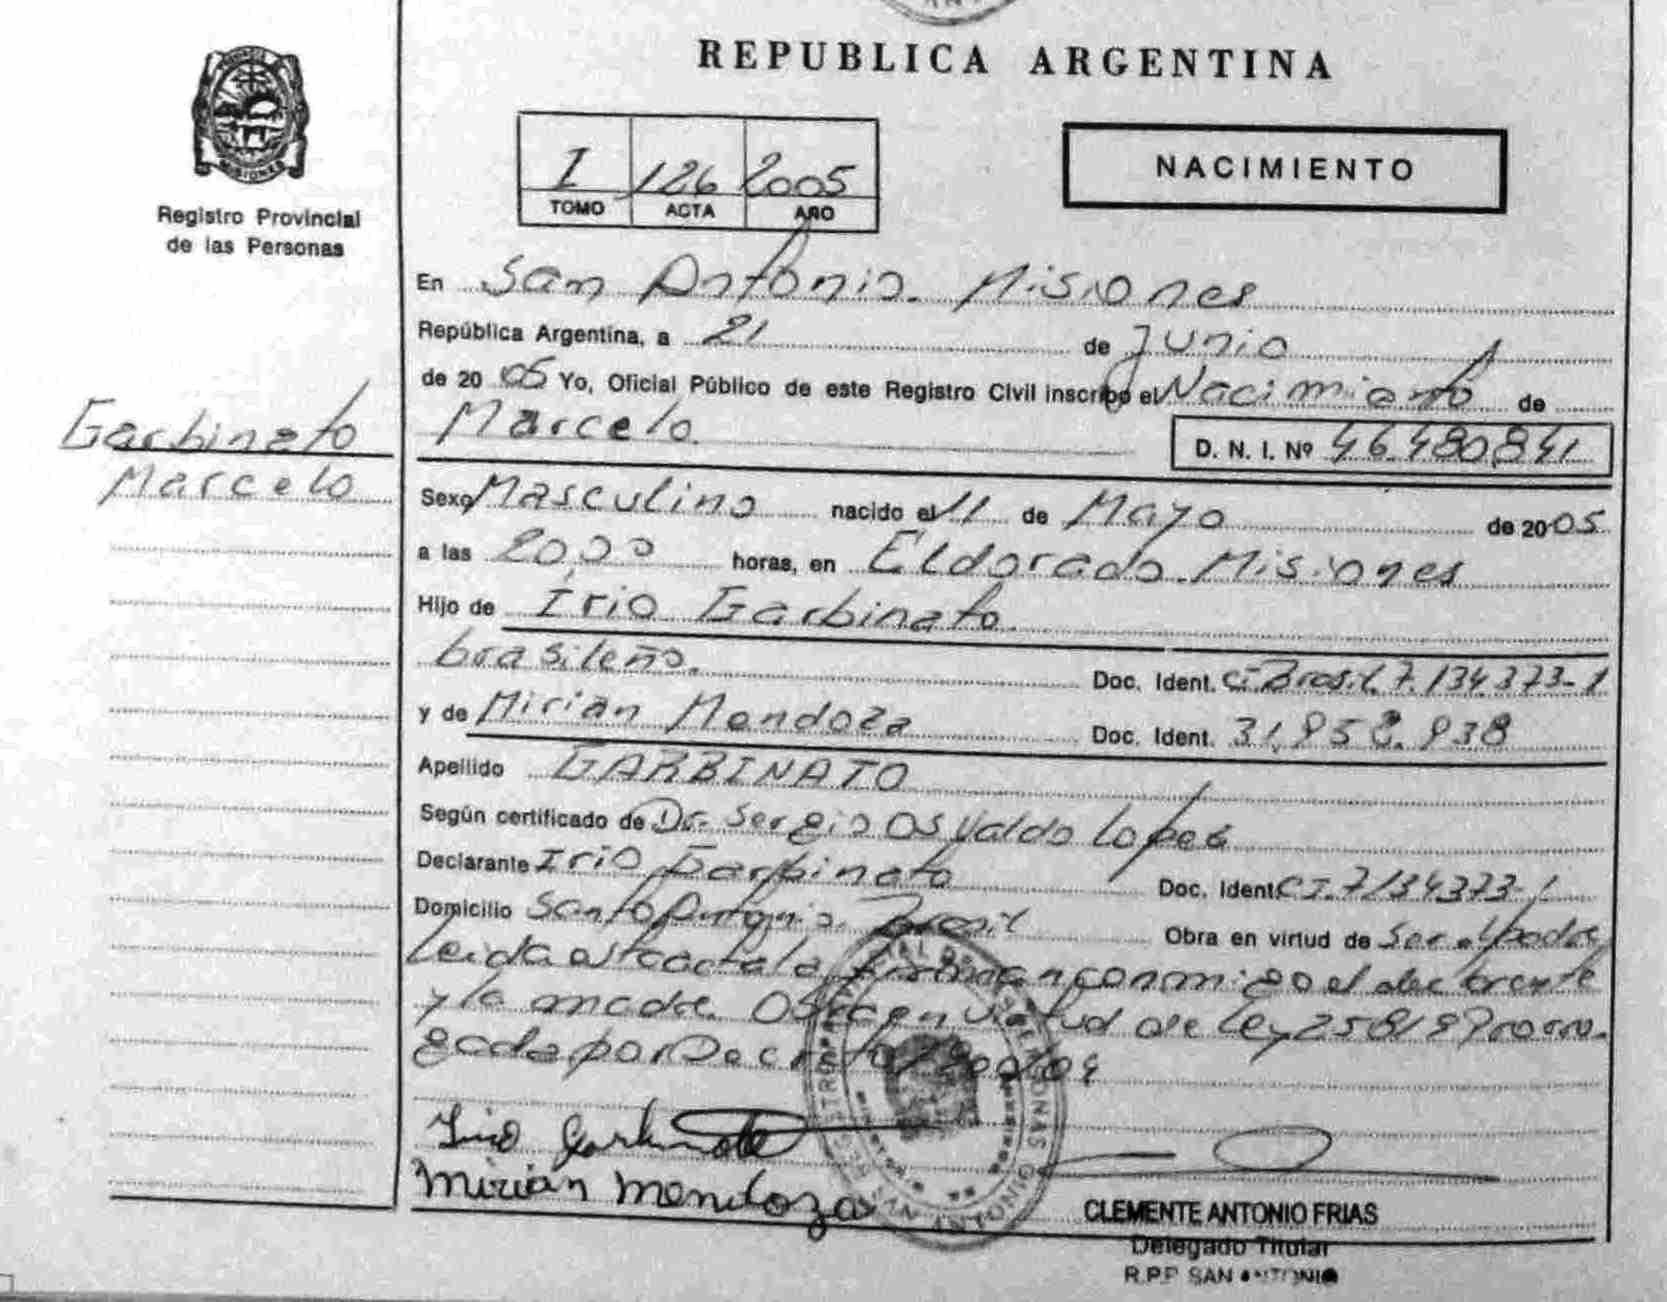 REPUBLICA ARGENTINA
I 126 2005
TOMO ACTA AÑO
NACIMIENTO
Registro Provincial
de las Personas
MISIONES
En San Antonio. Misiones
República Argentina, a 21 de Junio
de 2005 Yo, Oficial Público de este Registro Civil inscribo el Nacimiento de
Marcelo.
D. N. I. Nº 46.480.841
Garbinato
Marcelo
Sexo Masculino nacido el 11 de Mayo de 2005
a las 20,00 horas, en Eldorado. Misiones
Hijo de Irio Garbinato.
brasileño. Doc. Ident. C.I. Brasil. 7.134.373-1
y de Mirian Mendoza Doc. Ident. 31.958.938
Apellido GARBINATO
Según certificado de Dr. Sergio Osvaldo Lopes
Declarante Irio Garbinato Doc. Ident C.I. 7134373-1
Domicilio Santo Antonio. Brasil Obra en virtud de Ser el padre
Leida el acta la firman conmigo el declarante
y la madre. Obra en virtud de Ley 25819 prorro-
gada por Decreto /04
Irio Garbinato
Mirian Mendoza
SAN ANTONIO
CLEMENTE ANTONIO FRIAS
Delegado Titular
R.P.P. SAN ANTONIO